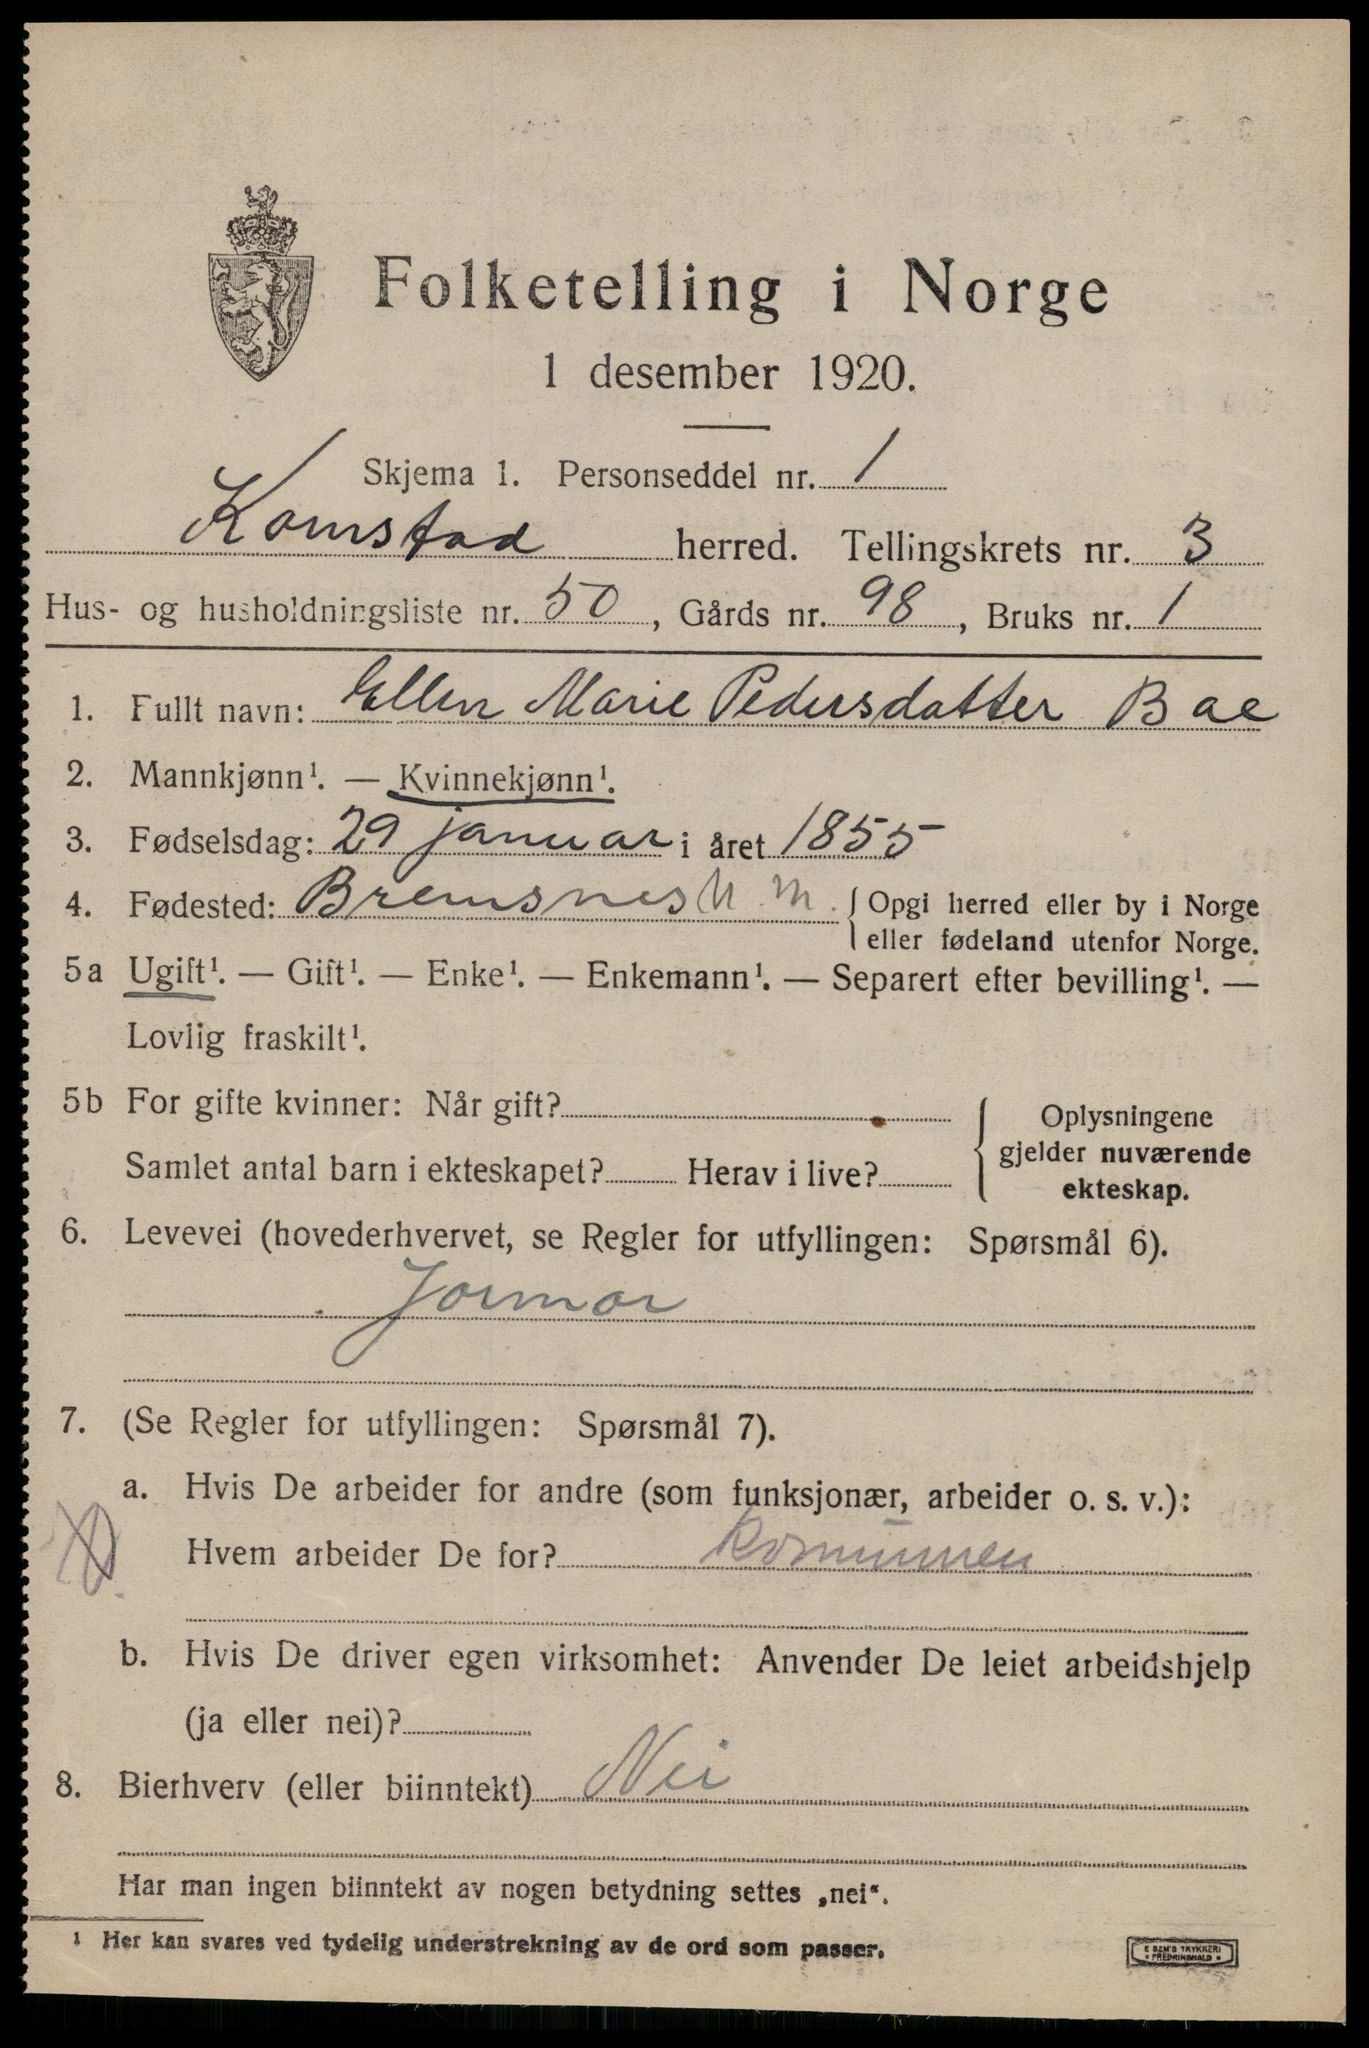 Folketelling i Norge
1 desember 1920.
Skjema 1. Personseddel nr. 1
Kornstad herred. Tellingskrets nr. 3
Hus- og husholdningsliste nr. 50, Gårds nr. 98, Bruks nr. 1
1. Fullt navn: Ellen Marie Pedersdatter Bae
2. Mannkjønn¹. — Kvinnekjønn¹.
3. Fødselsdag: 29 januar i året 1855
4. Fødested: Bremsnes N. M. { Opgi herred eller by i Norge
eller fødeland utenfor Norge.
5a Ugift¹. — Gift¹. — Enke¹. — Enkemann¹. — Separert efter bevilling¹. —
Lovlig fraskilt¹.
5b For gifte kvinner: Når gift?
Samlet antal barn i ekteskapet? Herav i live?
Oplysningene
gjelder nuværende
ekteskap.
6. Levevei (hovederhvervet, se Regler for utfyllingen: Spørsmål 6).
Jormor
7. (Se Regler for utfyllingen: Spørsmål 7).
a. Hvis De arbeider for andre (som funksjonær, arbeider o. s. v.):
Hvem arbeider De for? Komunnen
b. Hvis De driver egen virksomhet: Anvender De leiet arbeidshjelp
(ja eller nei)?
8. Bierhverv (eller biinntekt) Nei
Har man ingen biinntekt av nogen betydning settes „nei“.
¹ Her kan svares ved tydelig understrekning av de ord som passer.
E SEM'S TRYKKERI
FREDRIKSHALD